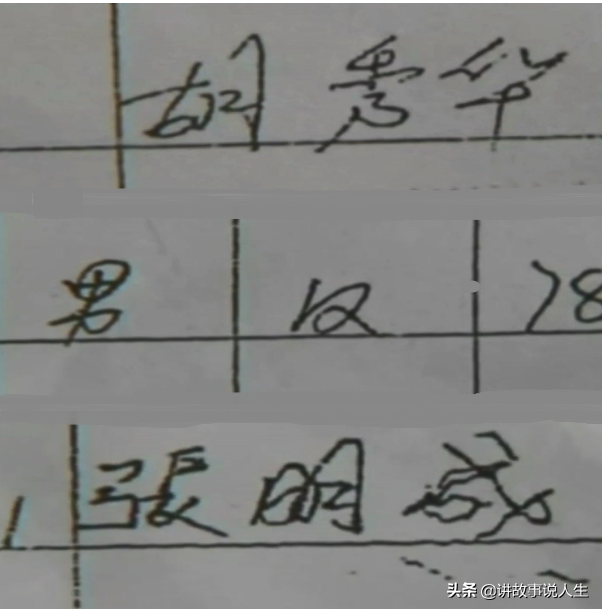 胡秀华
男 汉 78
張明成
头条 @讲故事说人生